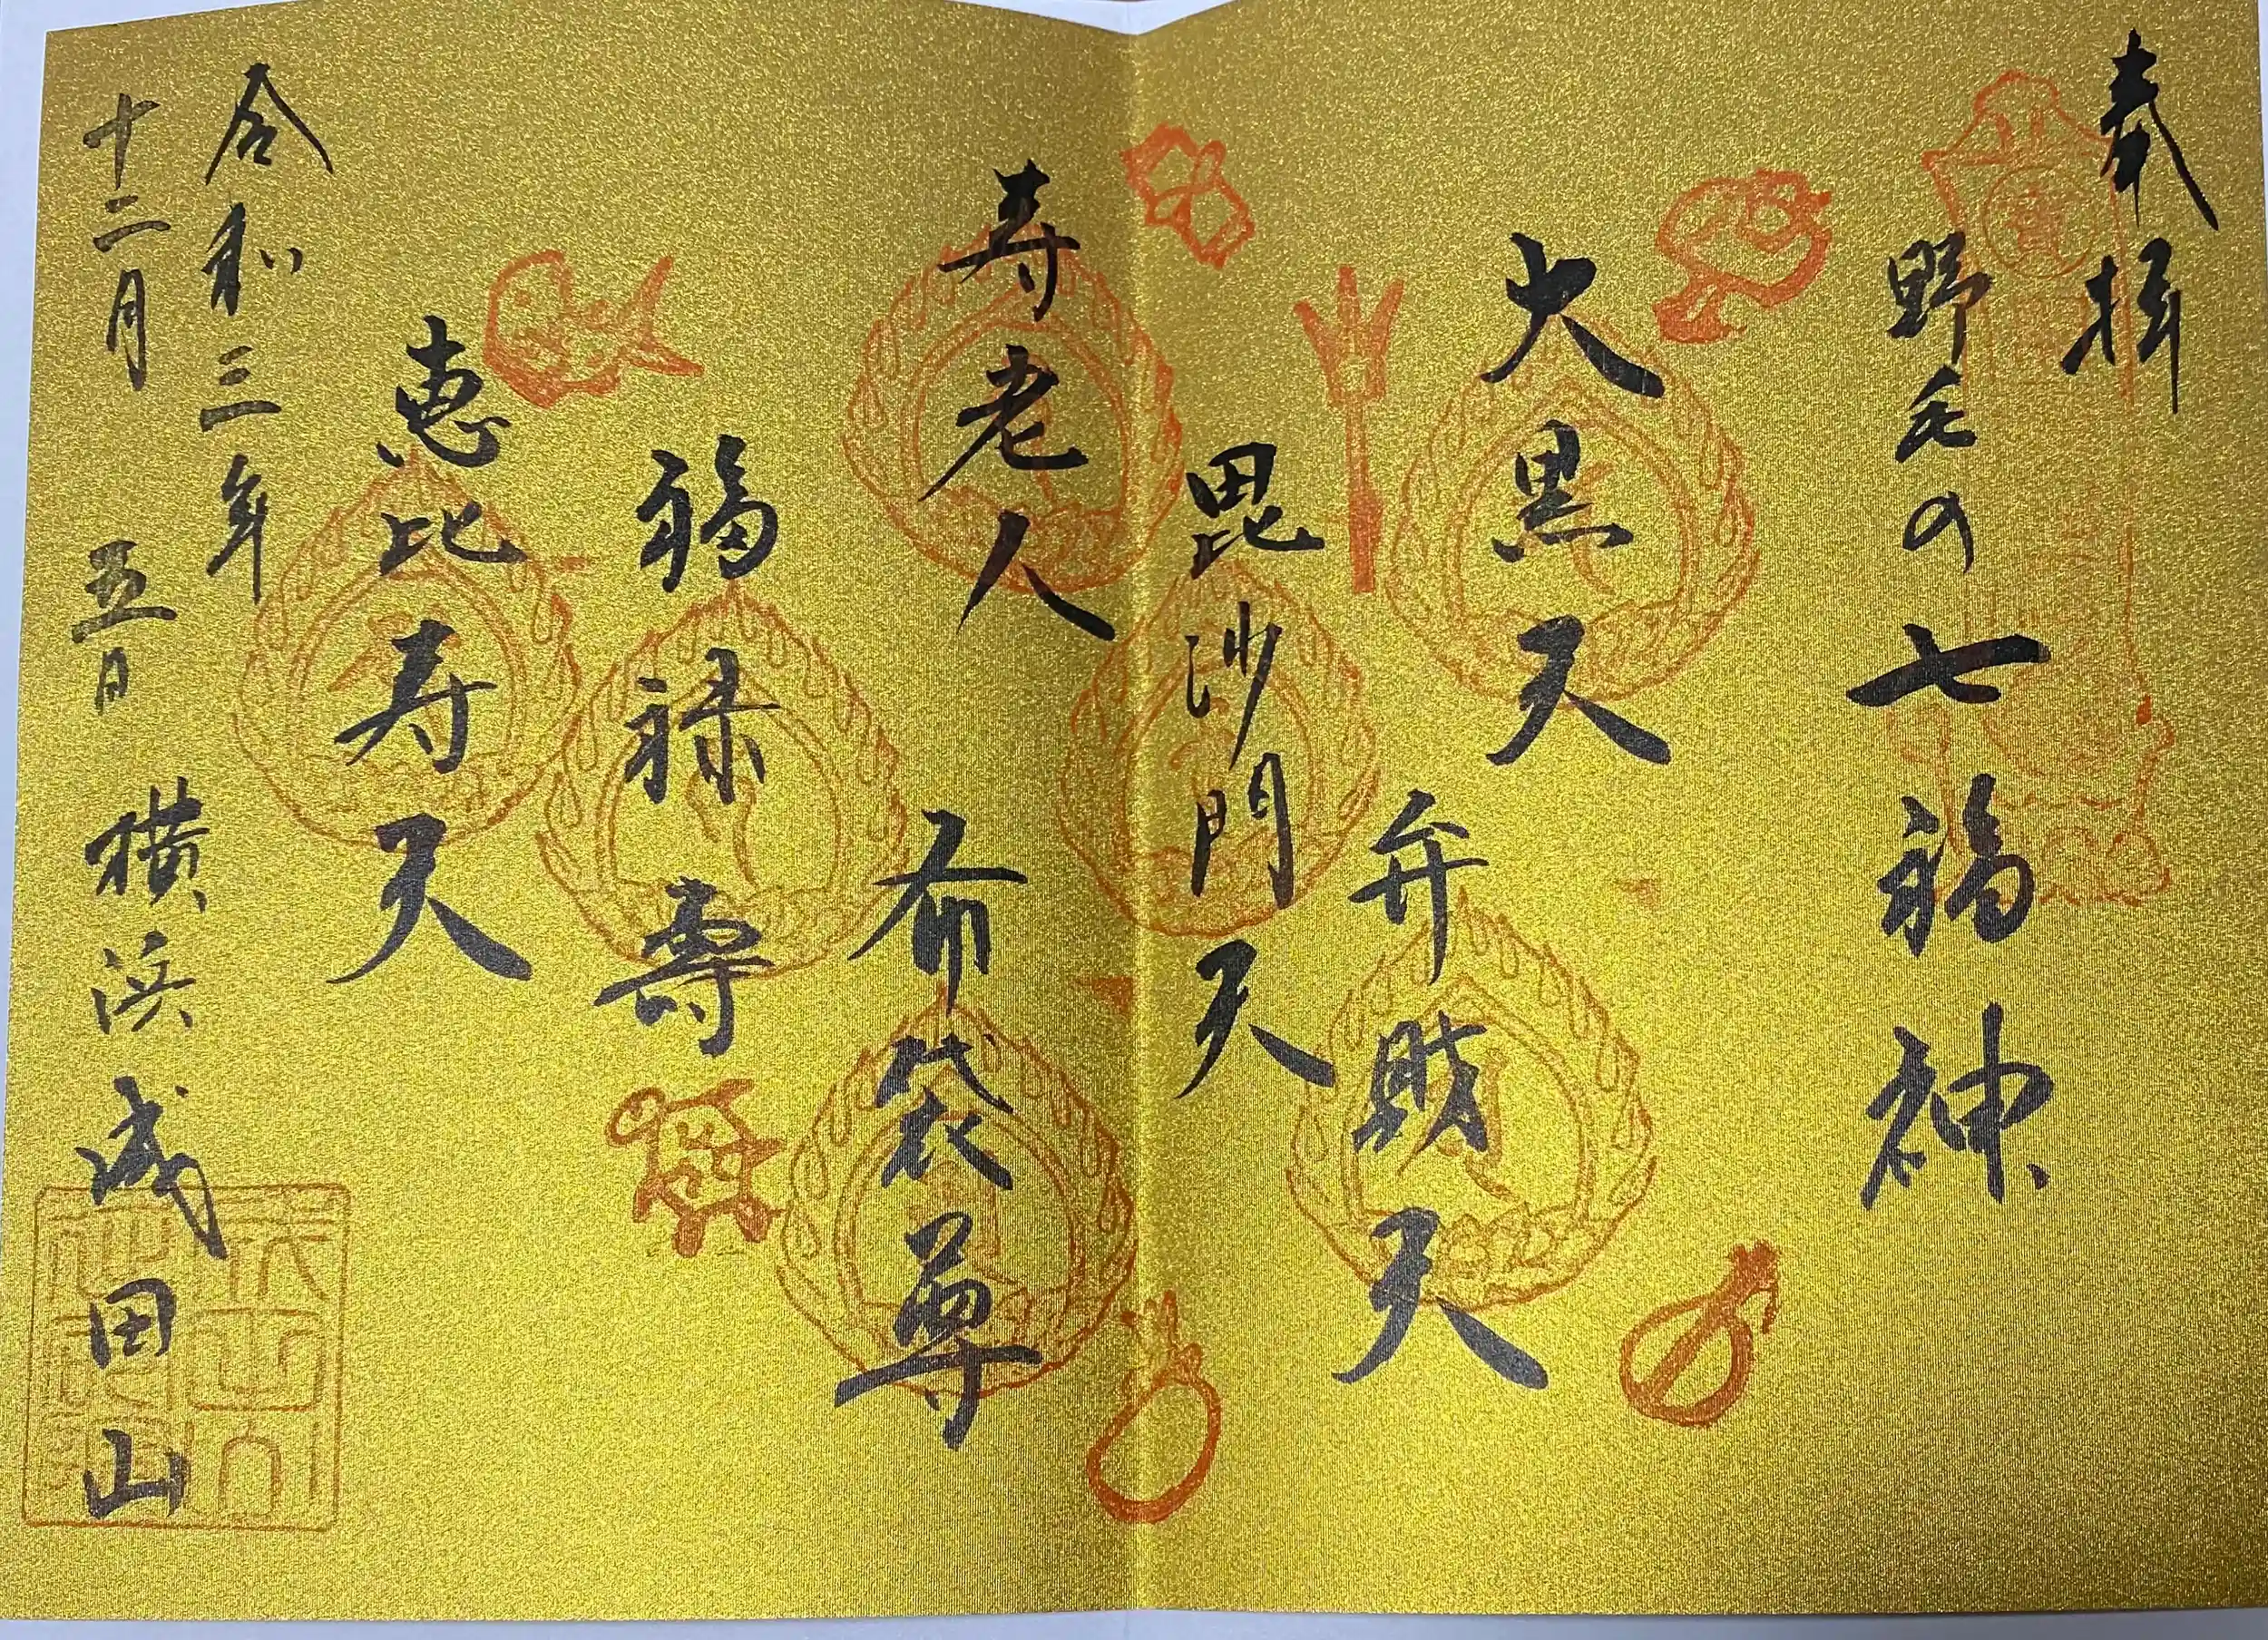 奉拝
野毛の七福神
大黒天
弁財天
毘沙門天
寿老人
布袋尊
福禄寿
恵比寿天
令和三年
十二月五日 横浜成田山